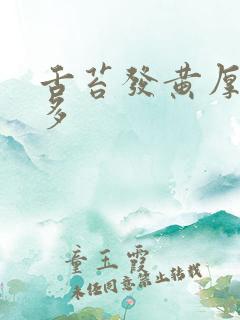 舌苔發黃厚
多
童玉霞
未经同意禁止转载